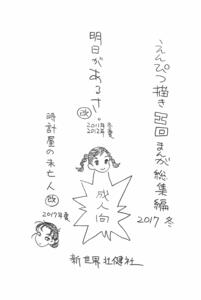 えんぴつ描きエロまんが総集編
2017 冬
明日があるさ。
改
2011年冬
2012年春
成人向
時計屋の未亡人 改
2017年夏
新世界壮健社